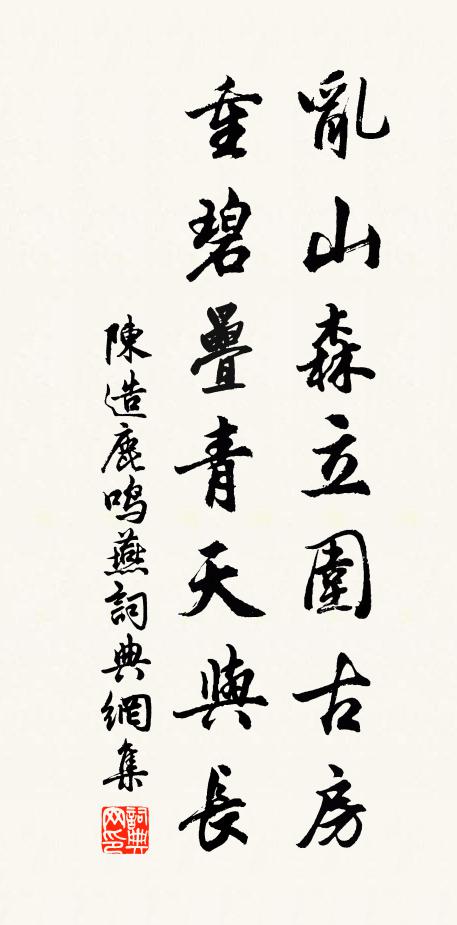 亂山森立圍古房
重碧疊青天與長
陳造鹿鳴燕詞典網集
詞典網印